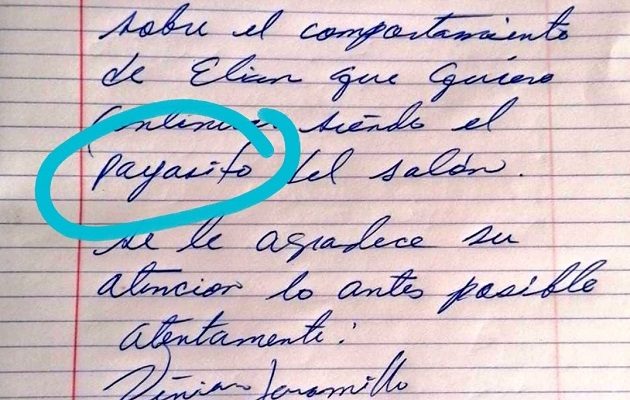 sobre el comportamiento
de Elian que quiere
continuar siendo el
payasito del salón.
se le agradece su
atencion lo antes posible
atentamente:
Jaramillo